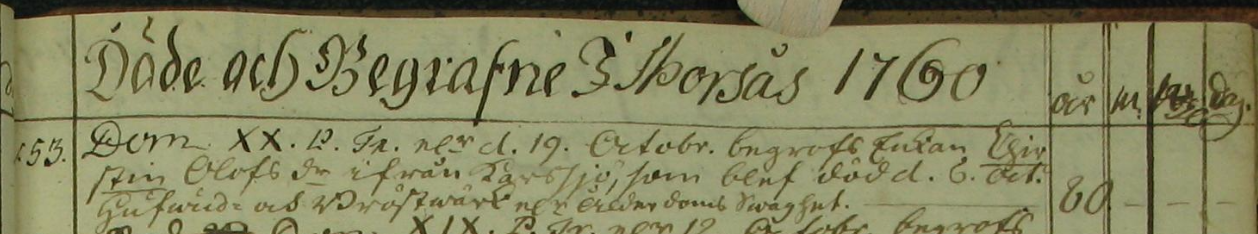 Döde och Begrafne I Thorsås 1760
år m. dag.
53. Dom. XX. P. Tr. elr d. 19. Octobr. begrofs Enkan Chir
stin Olofs dr ifrån Kårssjö, som blef död d. 6. Oct.
Hufwud= och Bröstwärk elr Ålderdoms Swaghet. 80. – – –
Dom. XIX. P. Tr. elr 12 Octobr. begrofs